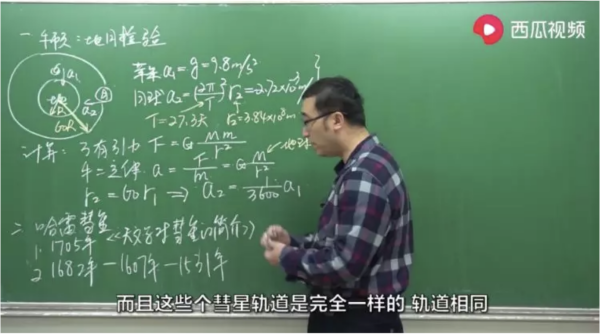 西瓜视频
一 牛顿:地月检验
苹果a₁=g=9.8m/s²
月球a₂=(2π/T)²r₂=2.72×10⁻³m/s²
T=27.3天 r₂=3.84×10⁸m
a₁
a₂
月
60R
计算:万有引力 F=G Mm/r²
牛二定律 a=F/m=G M/r²
地球
r₂=60r₁ ⇒ a₂=1/3600 a₁
二 哈雷彗星
1. 1705年《天文学对彗星的简介》
2 1682年-1607年-1531年
而且这些个彗星轨道是完全一样的 轨道相同